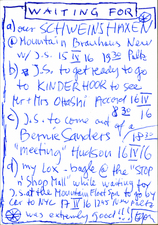 WAITING FOR
a) our SCHWEINSHAXEN
@ Mountain Brauhaus New
w/ J.S. 15 IV 16 1930 Paltz
b) J.S. to get ready to go
to KINDERHOOK to see
Mr + Mrs Otashi Accord 16 IV
830 16
c) J.S. to come out of a
Bernie Sanders
"meeting" Hudson 16 IV 16
d) my lox-bagle @ the "STOP
n' Shop Mall" while waiting for
J.S. at the Mountain to go by
car to NYC 17 IV 16 New Paltz
was extremely good!!!